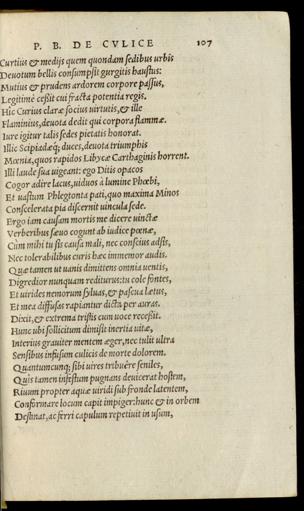 P. B. DE CVLICE 107
Curtius & medijs quem quondam sedibus urbis
Deuotum bellis consumpsit gurgitis haustus:
Mutius & prudens ardorem corpore passus,
Legitime cessit cui fracta potentia regis.
Hic Curius claræ socius uirtutis, & ille
Flaminius, deuota dedit qui corpora flammæ.
Iure igitur talis sedes pietatis honorat.
Illic Scipiadæq; duces, deuota triumphis
Mœnia, quos rapidos Libycæ Carthaginis horrent.
Illi laude sua uigeant: ego Ditis opacos
Cogor adire lacus, uiduos à lumine Phœbi,
Et uastum Phlegtonta pati, quo maxima Minos
Conscelerata pia discernit uincula sede.
Ergo iam causam mortis me dicere uinctæ
Verberibus sæuo cogunt ab iudice pœnæ,
Cùm mihi tu sis causa mali, nec conscius adsis,
Nec tolerabilibus curis hæc immemor audis.
Quæ tamen ut uanis dimittens omnia uentis,
Digredior nunquam rediturus: tu cole fontes,
Et uirides nemorum syluas, & pascua lætus,
Et mea diffusas rapiantur dicta per auras.
Dixit, & extrema tristis cum uoce recessit.
Hunc ubi sollicitum dimisit inertia uitæ,
Interius grauiter mentem æger, nec tulit ultra
Sensibus infusum culicis de morte dolorem.
Quantumcunq; sibi uires tribuêre seniles,
Quis tamen infestum pugnans deuicerat hostem,
Riuum propter aquæ uiridi sub fronde latentem,
Conformare locum capit impiger: hunc & in orbem
Destinat, ac ferri capulum repetiuit in usum,